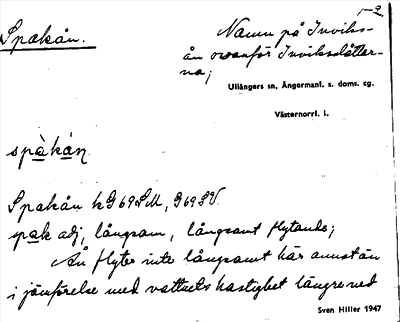 1-2
Spakån.
Namn på Inviks-
ån ovanför Inviksslätter-
na;
Ullångers sn, Ångermanl. s. doms. tg.
Västernorrl. l.
spàkán
Spakån kG69SM, G69SV.
spak adj, långsam, långsamt flytande;
Ån flyter inte långsamt här annat än
i jämförelse med vattnets hastighet längre ned
Sven Hiller 1947